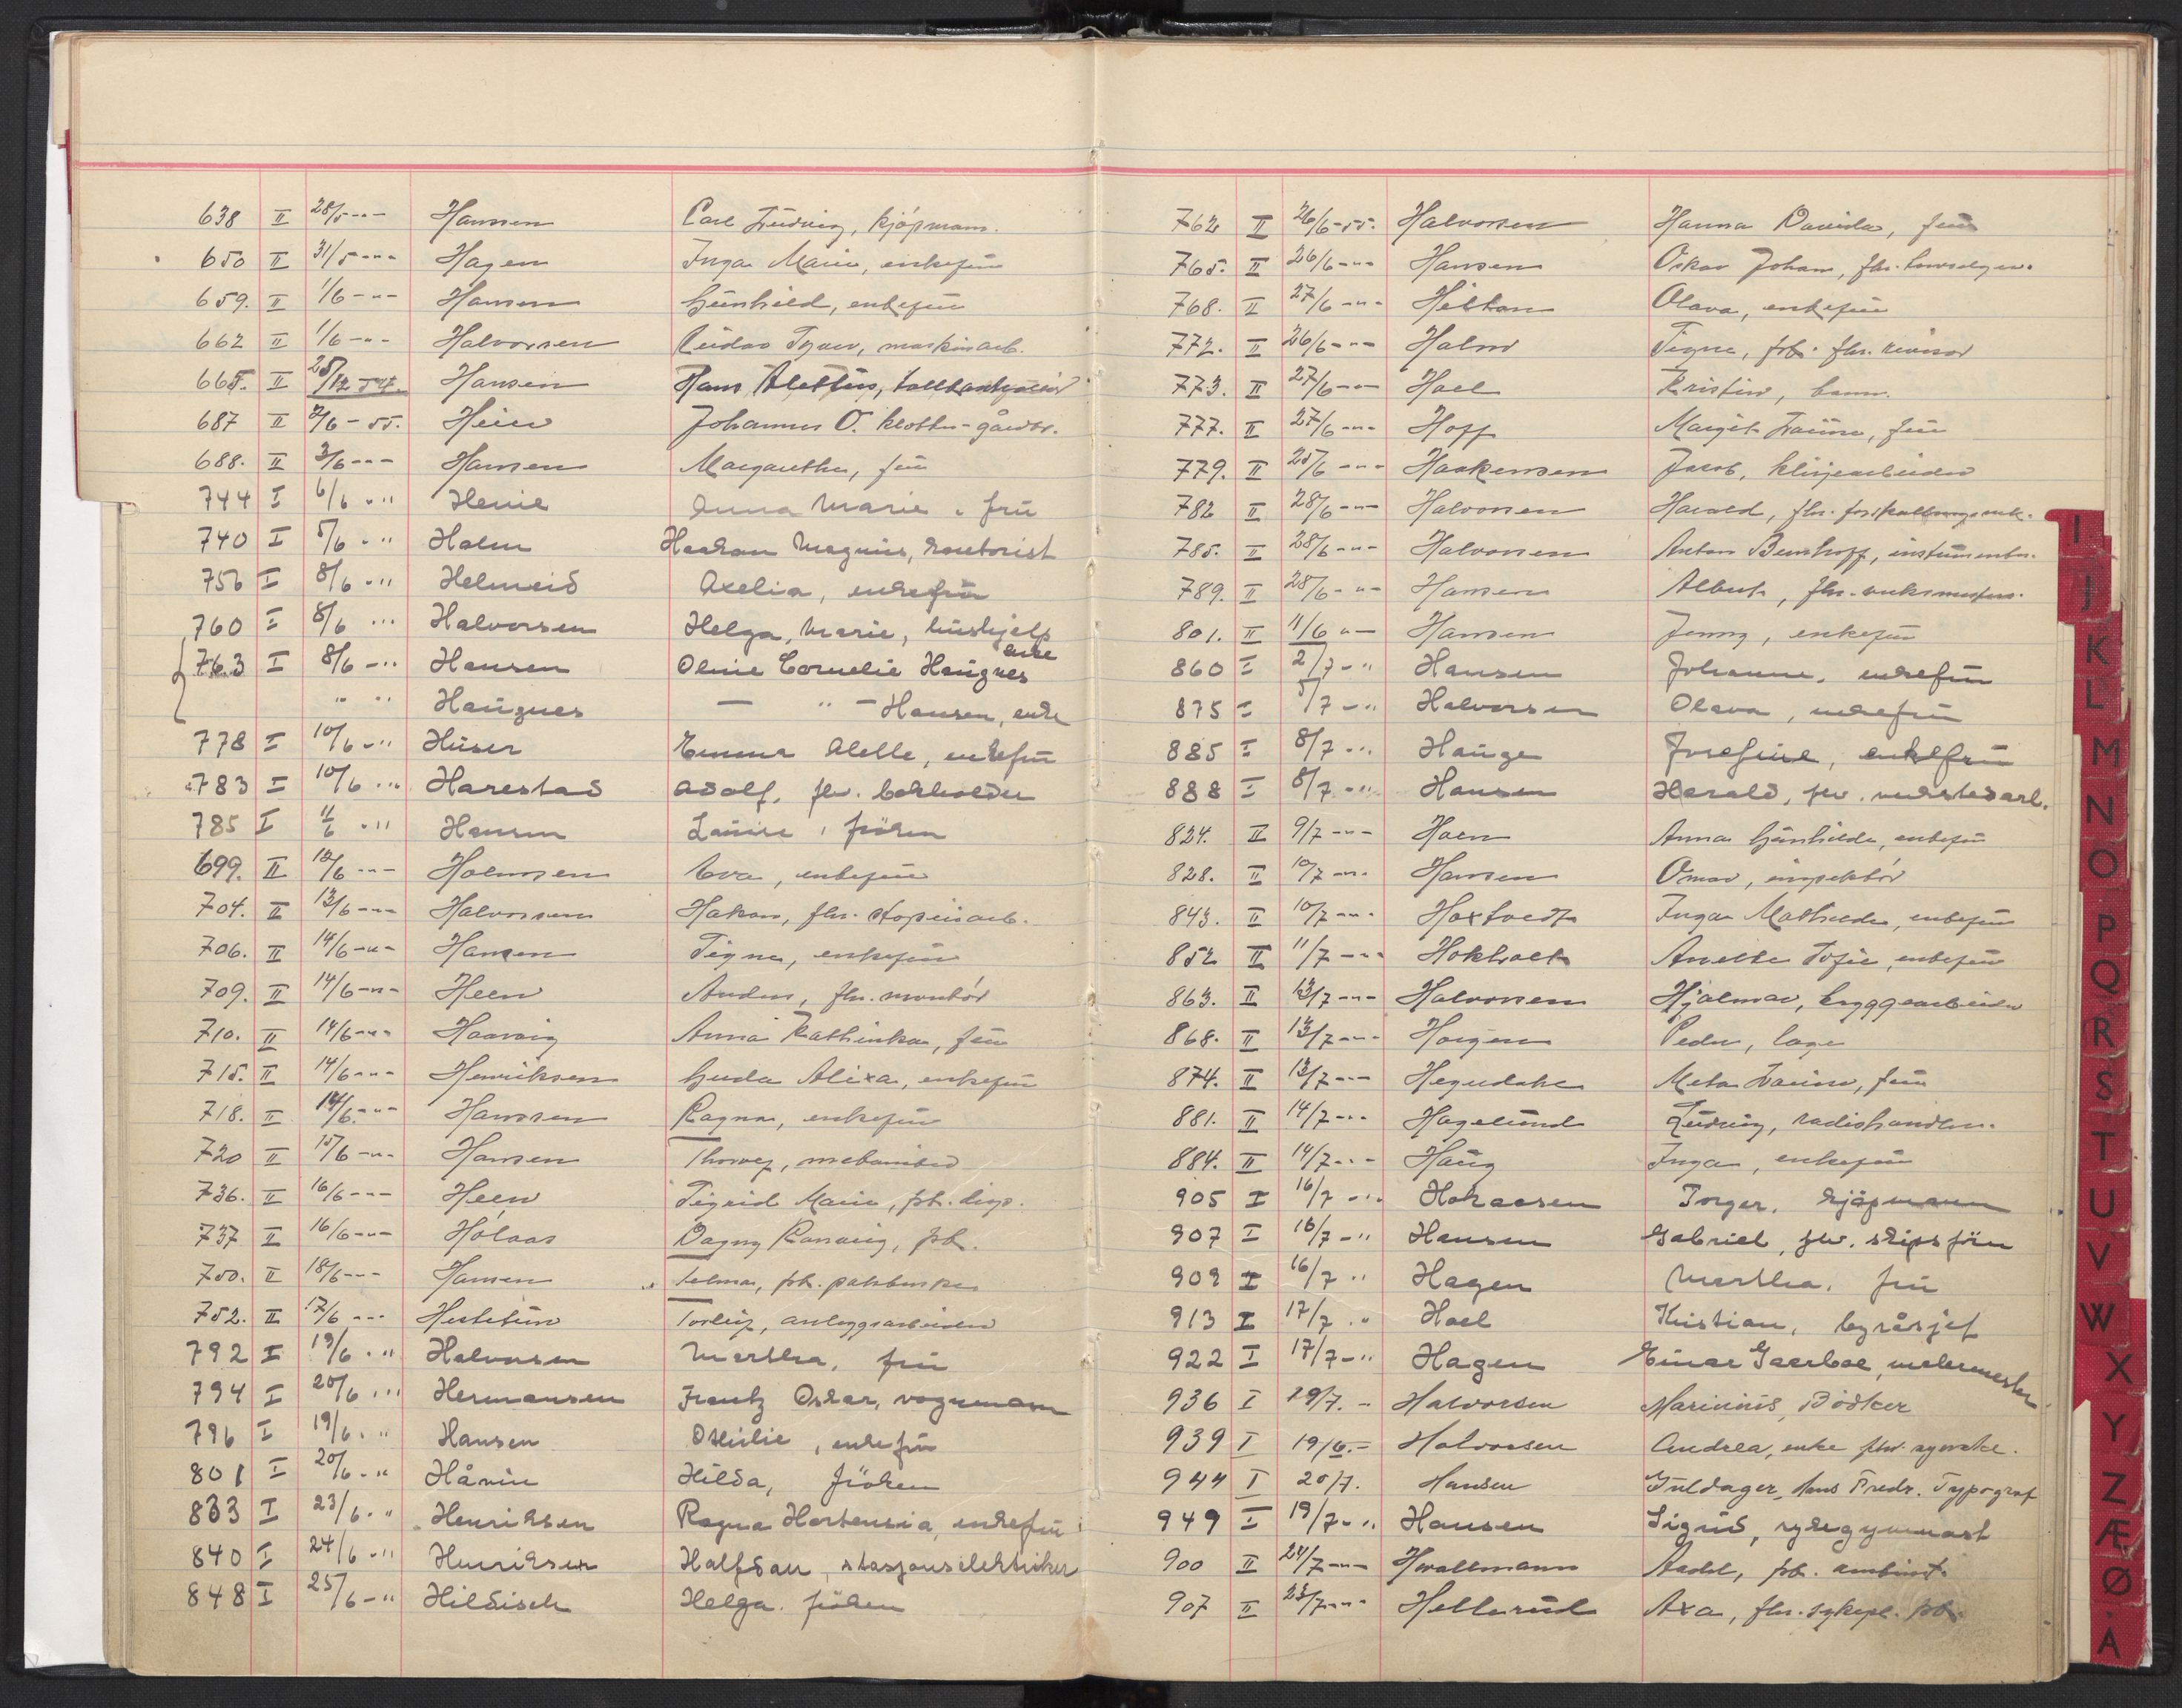 638 II 28/5 -"- Hanssen Carl Ludvig, kjøpmann.
650 II 31/5 -"- Hagen Inga Marie, enkefrü
659. II 1/6 -"- Hansen Günhild, enkefrü
662 II 1/6 -"- Halvorsen maskinarb.
665. II 28/12 54. Hansen Hans
687 II 2/6 - 55. Heier Johannes O. klokker-gårdbr.
688. II 3/6 -"- Hansen Margarethe, frü
744 I 6/6 -"- Henie Anna Marie, frü
740 I 5/6 -"- Holm Haakon Magnüs, kontorist
756 I 8/6 -"- Helmeid Axelia, enkefrü
760 I 8/6 -"- Halvorsen Helga, Marie, hüshjelp
763 I 8/6 -"- Hansen Oline Cornelie Haügnes enke
" " Haügnes — " — Hansen, enke
778 I 10/6 -"- Hüser Emma enkefrü
783 I 10/6 -"- Harestad Adolf, fhv. bokholder
785 I 11/6 -"- Hansen Laüra, frøken
699. II 12/6 -"- Holmsen Eva, enkefrü
704. II 13/6 -"- Halvorsen Hakon, fhv. støperiarb.
706. II 14/6 -"- Hansen Signe, enkefrü
709. II 14/6 -"- Heen Anders, fhv. montør
710. II 14/6 -"- Haavig Anna Kathinka, frü
715. II 14/6 -"- Henriksen Gerda Alixa, enkefrü
718. II 14/6 -"- Hanssen Ragna, enkefrü
720 II 15/6 -"- Hansen mekaniker
736. II 16/6 -"- Heen Sigrid Marie, frk.
737 II 16/6 -"- Hólaas Dagny Ranveig, frk.
750. II 18/6 -"- Hansen Selma, frk.
752. II 17/6 -"- Hestetün Torleif, anleggsarbeider
792 I 19/6 -"- Halvorsen Martha, frü
794 I 20/6 -"- Hermansen Frantz Oskar, vognmann
796 I 19/6 -"- Hansen Othilie, enkefrü
801 I 20/6 -"- Hilda, frøken
833 I 23/6 -"- Henriksen Ragna Hortensia, enkefrü
840 I 24/6 -"- Henriksen Halfdan, stasjonselektriker
848 I 25/6 -"- Hildisch Helga, frøken
762 II 26/6 - 55. Halvorsen Hanna Davida, frü
765. II 26/6 -"- Hansen Oskar Johan, fhv.
768. II 27/6 -"- Olava, enkefrü
772. II 26/6 -"- Holm Signe, frk. fhv. revisor
773. II 27/6 -"- Hoel Kristin, barn.
777. II 27/6 -"- Hoff Margit Laüra, frü
779. II 25/6 -"- Haakensen Jacob,
782 II 28/6 -"- Halvorsen Harald, fhv.
785. II 28/6 -"- Halvorsen Anton instrümentm.
789. II 28/6 -"- Hansen Albert, fhv. verksmester.
801. II 11/6 -"- Hansen Jenny, enkefrü
860 I 2/7 -"- Hansen Johanne, enkefrü
875 I 5/7 -"- Halvorsen Olava, enkefrü
885 I 8/7 -"- Haüge Josefine, enkefrü
888 I 8/7 -"- Hansen Harald, fhv. verkstedarb.
824. II 9/7 -"- Hoen Anna Günhilda, enkefrü
828. II 10/7 -"- Hansen Omar, inspektør
843. II 10/7 -"- Hoxtvedt Inga Mathilde, enkefrü
852 II 11/7 -"- Hokholt Anette Sofie, enkefrü
863. II 13/7 -"- Halvorsen Hjalmar, bryggearbeider
868. II 13/7 -"- Horgen Peder,
874. II 13/7 -"- Hegudahl Meta Laüra, frü
881. II 14/7 -"- Hagelünd Lüdvig, radiohandler.
884. II 14/7 -"- Haüg Inga, enkefrü
905 I 16/7 -"- Hokaasen Torger, kjøpmann
907 I 16/7 -"- Hansen Gabriel, fhv. skipsfører
909 I 16/7 " Hagen Martha, frü
913 I 17/7 " Hoel Kristian, byråsjef
922 I 17/7 -"- Hagen Einar Gaarboe, malermester
936 I 29/7. - Halvorsen Marinüs, Bødker
939 I 19/6. - Halvorsen Andrea, enke
944 I 20/7. Hansen Güldager, Hans Fredr. Typograf
949 I 19/7 -"- Hansen Sigrid, sykegymnast
900 II 24/7 -"- Hvalbmann frk.
907 II 23/7 -"- Hellerüd Axa, fhv. sykepl. frk.
I
J
K
L
M
N
O
P
Q
R
S
T
U
V
W
X
Y
Z
Æ
Ø
Å